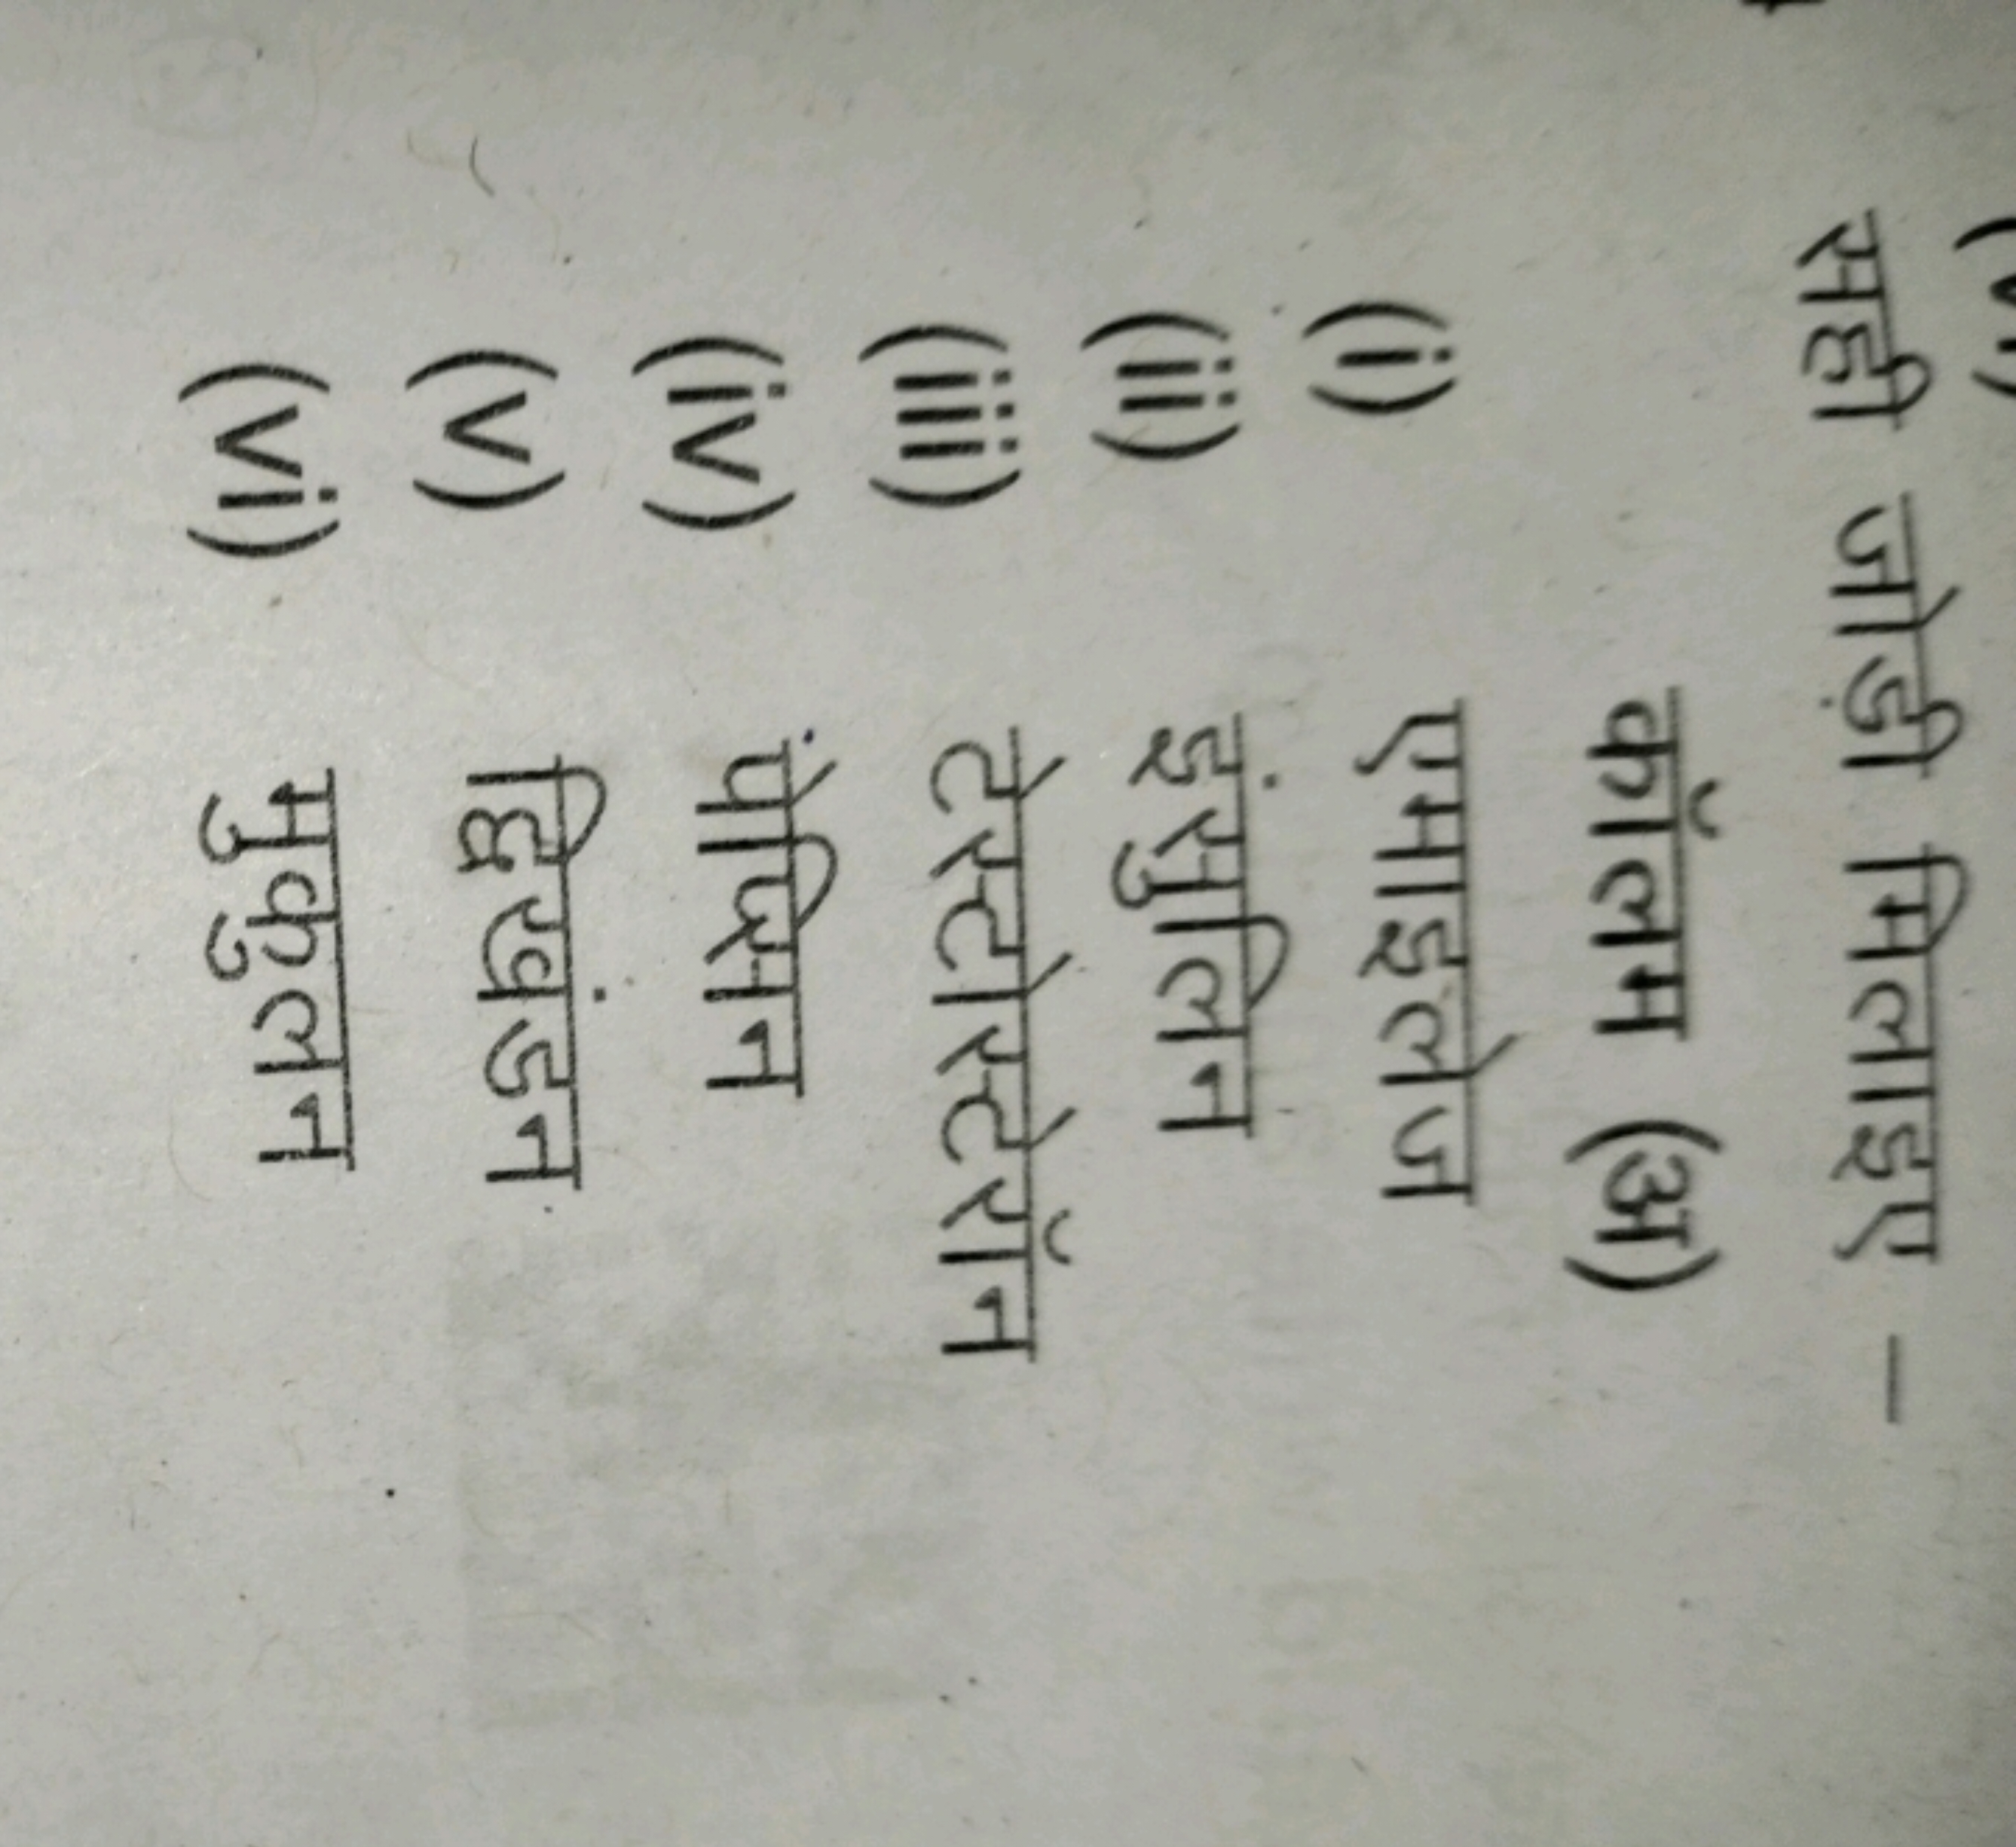 सही जोड़ी मिलाइए –
कॉलम (अ)
(i) एमाइलेज
(ii) इंसुलिन
(iii) टेस्टोस्टेरॉन
(iv) पेप्सिन
(v) द्विखंडन
(vi) मुकुलन